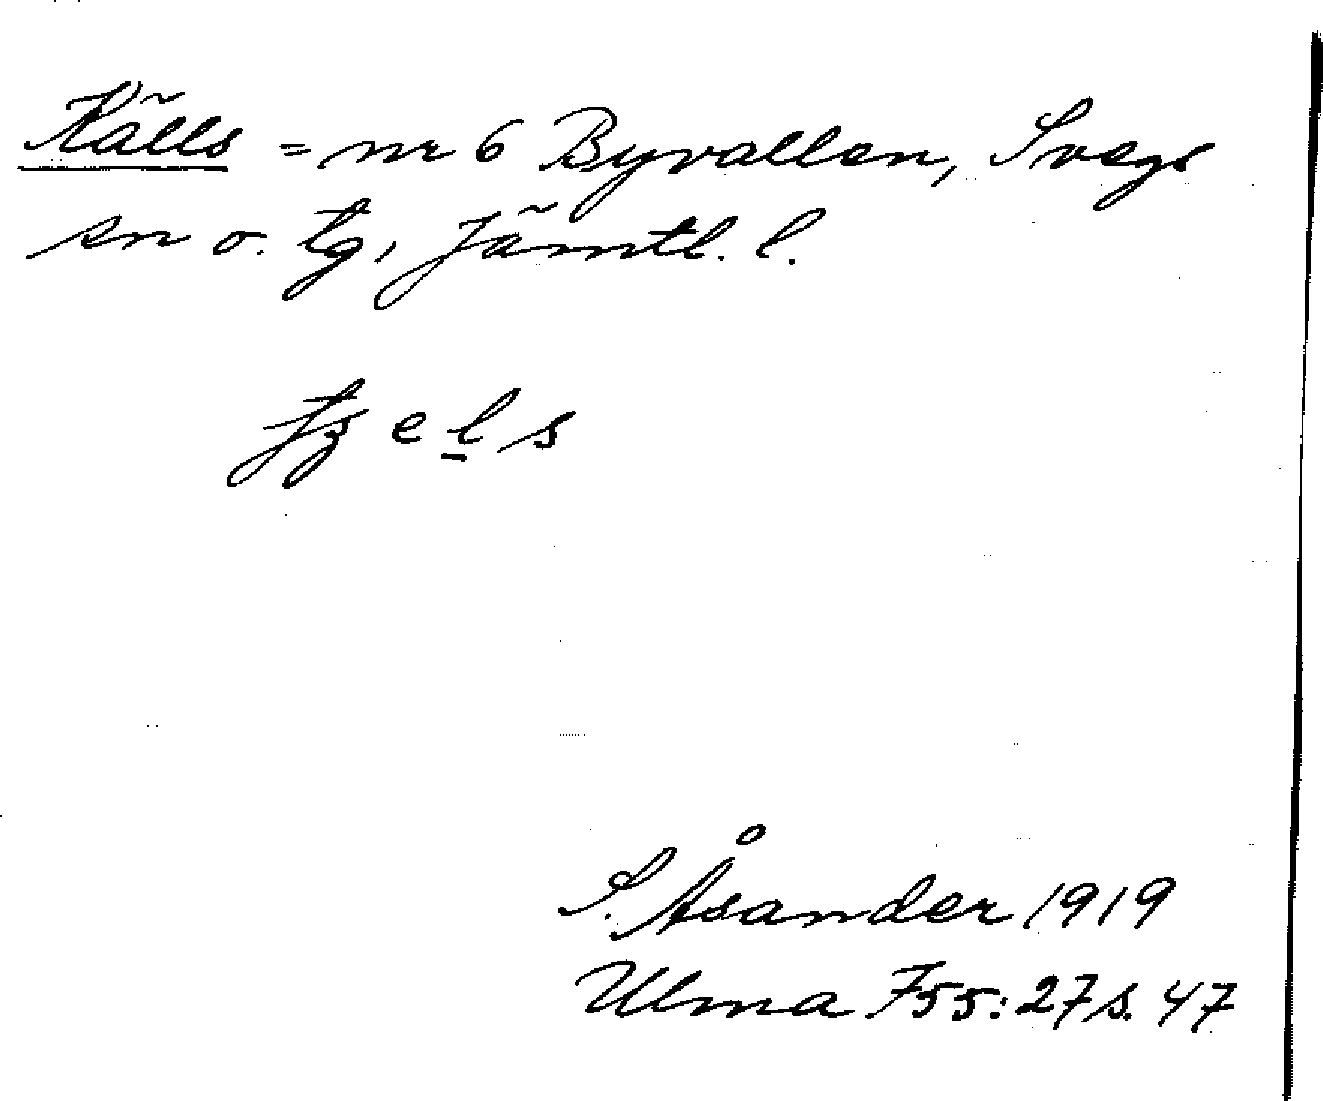 Källs = nr 6 Byvallen, Svegs
sn o. tg, Jämtl. l.
els
S. Åsander 1919
Ulma 755:27 s. 47